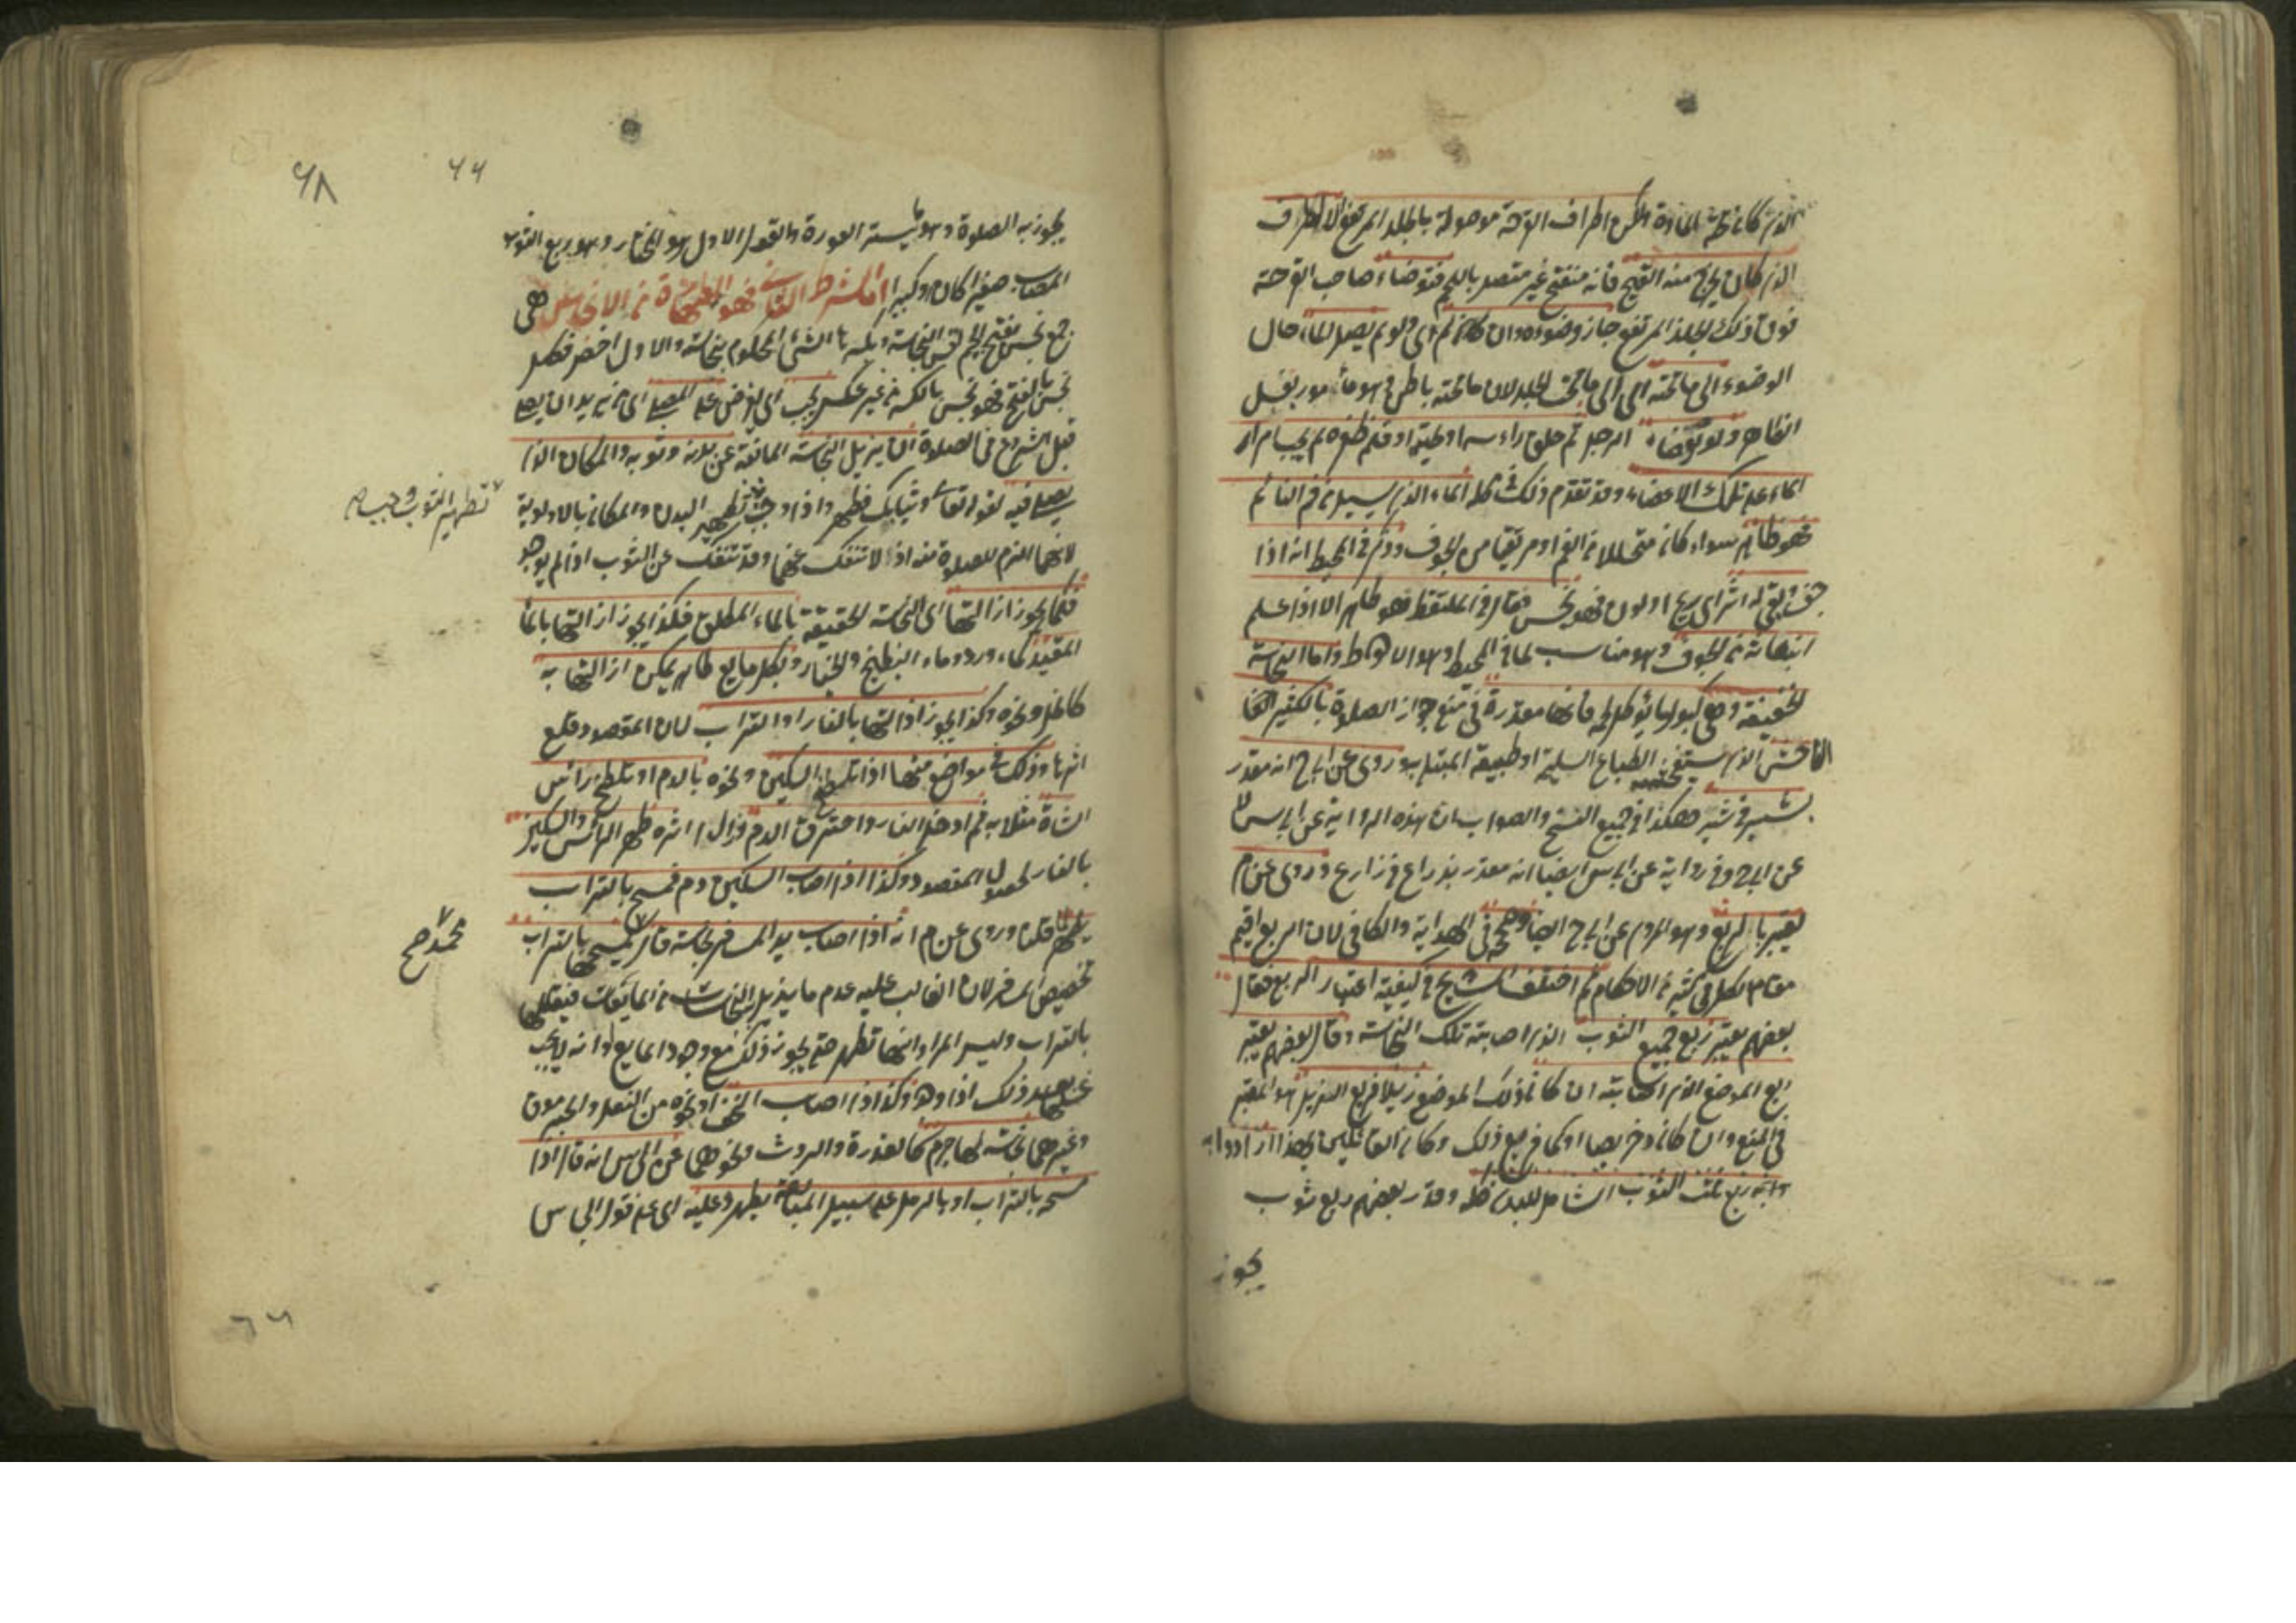 الذي كانت تحته المادة ولكن اطراف القرحة موصولة بالجلد المرتفع الا الطرف
الذي كان يخرج منه القيح فانه منفتح غير متصل باللحم فتوضاء صاحب القرحة
فوق ذلك الجلد المرتفع جاز وضوءه وان كان لم اي ولو لم يصل الماء حال
الوضوء الى ما تحته اي الى ما تحت الجلد لان ما تحته باطن وهو مأمور بغسل
الظاهر ولو توضاء الرجل ثم حلق رأسه او لحيته او قلم ظفره لم يجب امرار
الماء على تلك الاعضاء وقد تقدم ذلك كله الماء الذي يسيل من فم النائم
فهو طاهر سواء كان متحللا من الفم او مرتقيا من الجوف وذكر في المحيط انه اذا
جف وبقي له اثر اي ريح او لون فهو نجس وقال في الملتقط فهو طاهر الا اذا علم
انبعاثه من الجوف وهو مناسب لما في المحيط وهو الاحوط واما النجاسة
الخفيفة وهي كبول ما يؤكل لحمه فانها مقدرة في منع جواز الصلوة بالكثير
الفاحش الذي يستفحشه الطباع السليمة او طبيعة المبتلى به وروي عن ابي ح انه مقدر
بشبر في شبر هكذا في جميع النسخ والصواب ان هذه الرواية عن ابي س لا
عن ابي ح وفي رواية عن ابي س ايضا انه مقدر بذراع في ذراع وروي عن م
يعتبر بالربع وهو المروي عن ابي ح ايضا وصححه في الهداية والكافي لان الربع اقيم
مقام الكل في كثير من الاحكام ثم اختلف المشايخ في كيفية اعتبار الربع فقال
بعضهم يعتبر ربع جميع الثوب الذي اصابته تلك النجاسة وقال بعضهم يعتبر
ربع الموضع الذي اصابته ان كان ذلك الموضع ذيلا فربع الذيل هو المعتبر
في المنع وان كان دخريصا او كما فربع ذلك وكان القائلين بهذا ارادوا به
وانه ربع ذلك الثوب الشامل للبدن كله وقدر بعضهم ربع ثوب
يجوز
٦٨
٦٦
يجوز به الصلوة وهو ما يستر العورة والقول الاول هو المختار وهو ربع الثوب
المصاب صغيرا كان او كبيرا اما الشرط الثاني فهو الطهارة من الانجاس هي
جمع نجس بفتح الجيم نفس النجاسة وبكسرها الشيء المحكوم بنجاسته والاول اخص فكل
نجس بالفتح فهو نجس بالكسر من غير عكس يجب اي يفرض على المصلي اي من يريد ان يصلي
قبل الشروع في الصلوة ان يزيل النجاسة المانعة عن بدنه وثوبه والمكان الذي
يصلي فيه لقوله تعالى وثيابك فطهر واذا وجب تطهير البدن والمكان بالاولوية
لانهما الزم للصلوة منه اذ لا تنفك عنهما وقد تنفك عن الثوب اذا لم يوجد
فكما يجوز ازالتها اي النجاسة الحقيقية بالماء المطلق فكذا يجوز ازالتها بالماء
المقيد كماء ورد وماء البطيخ والخيار وبكل مايع طاهر يمكن ازالتها به
كالخل ونحوه وكذا يجوز ازالتها بالنار او التراب لان المقصود قلع
اثرها وذلك في مواضع منها اذا تلطخ السكين ونحوه بالدم او تلطخ رأس
الشاة مثلا به ثم ادخل النار واحترق الدم وزال اثره طهر الرأس والسكين
بالنار لحصول المقصود وكذا اذا اصاب السكين دم فمسح بالتراب
يطهر لما قلنا وروي عن م انه اذا اصاب يد المسافر نجاسة قال يمسحها بالتراب
تخصيص المسافر لان الغالب عليه عدم ما يزيل النجاسة من المايعات فيقللها
بالتراب وليس المراد انها تطهر حتى يجوز ذلك مع وجود المايع وانه لا يجب
غسلها بعد ذلك اذا وجد وكذا اذا اصاب الخف او نحوه من النعل والجرموق
وغيره نجاسة لها جرم كالعذرة والروث ونحوهما عن ابي س انه قال اذا
مسحه بالتراب او بالرمل على سبيل المبالغة يطهر وعليه اي على قول ابي س
تطهير الثوب
محمد ح